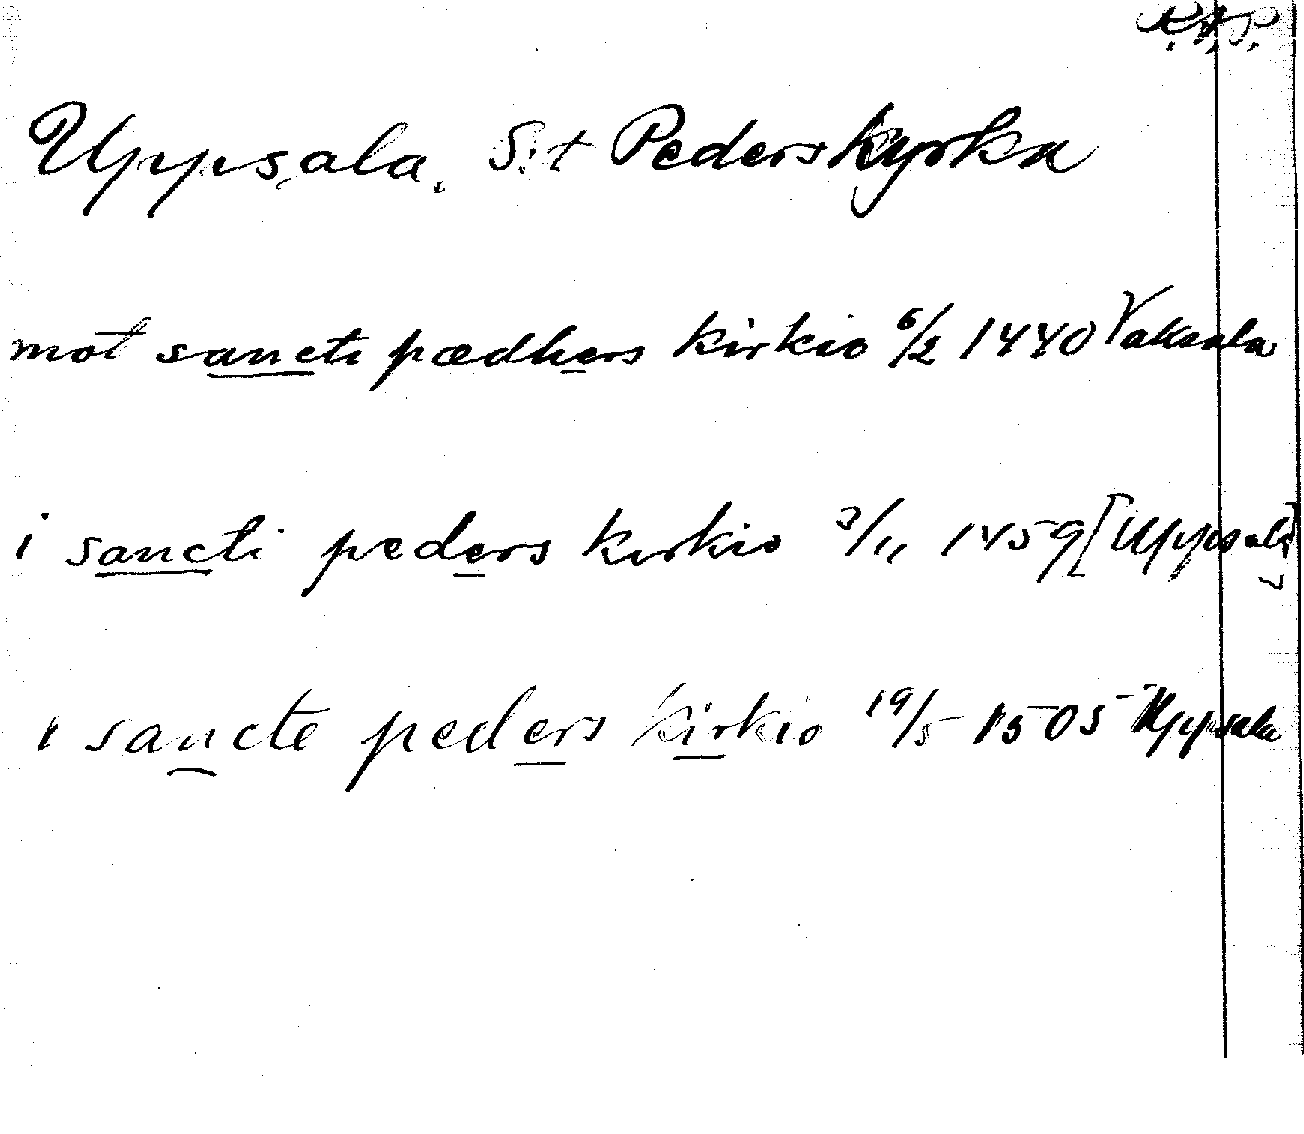 R.A.P.
Uppsala. S:t Pederskyrka
mot sancti pædhers kirkio 6/2 1440 Vaksala
i sancti peders kirkio 3/11 1459 [Uppsala]
i sancte peders kirkio 19/5 1505 Uppsala